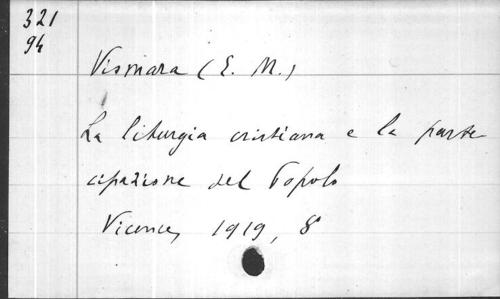 321
94
Vismara (E. M.)
La liturgia cristiana e la parte
cipazione del Popolo
Vicence, 1919, 8°